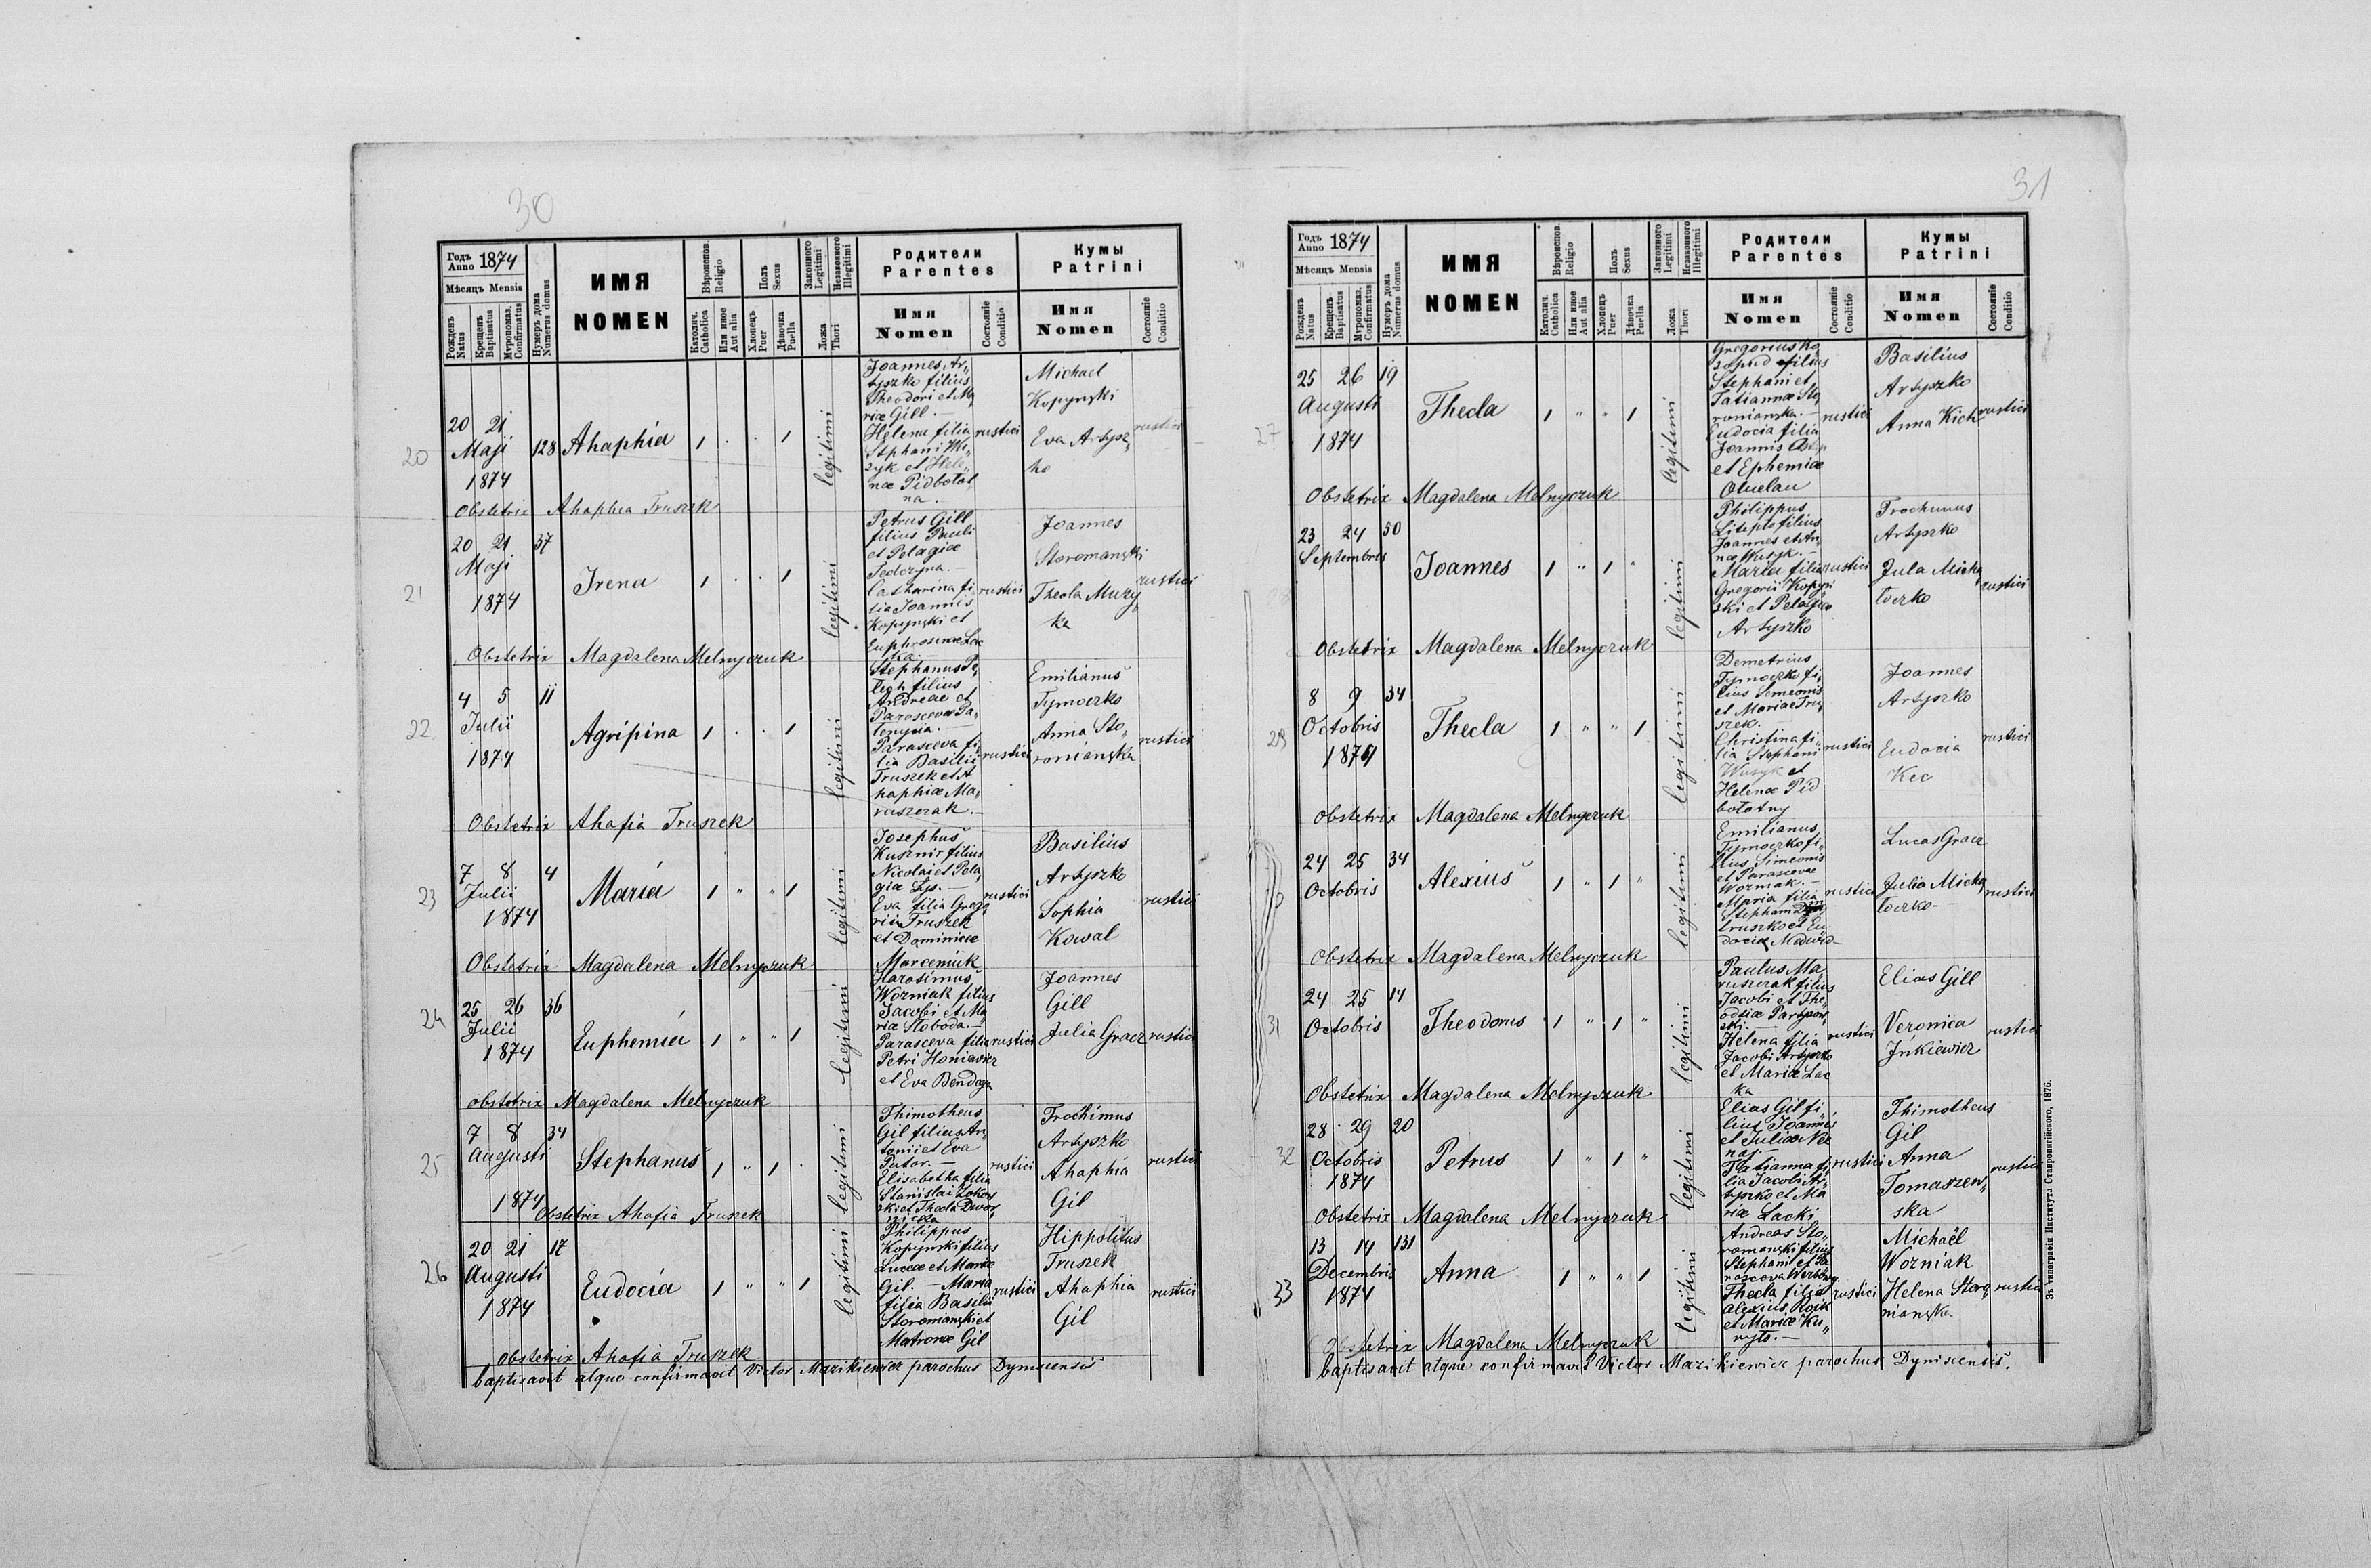 30
Годъ
Anno 1874
Мѣсяцъ Mensis
Рожденъ
Natus
Крещенъ
Baptisatus
Мѵропомаз.
Confirmatus
Нумеръ дома
Numerus domus
ИМЯ
NOMEN
Вѣроиспов.
Religio
Католич.
Catholica
Или иное
Aut alia
Полъ
Sexus
Хлопецъ
Puer
Дѣвочка
Puella
Законного
Legitimi
Незаконного
Illegitimi
Ложа
Thori
Родители
Parentes
Имя
Nomen
Состояніе
Conditio
Кумы
Patrini
Имя
Nomen
Состояніе
Conditio
20
20 21 128
Maji
1874
Ahaphia
1 . . 1
legitimi
Joannes Ar„
tyszko filius
Theodori et Ma„
riæ Gill. —
Helena filia
Stphani Wu„
zyk et Hele„
næ Pidbołot
na. —
rustici
Michael
Kopynski
Eva Artysz„
ko
rustici
Obstetrix Ahaphia Truszek
21
20 21 37
Maji
1874
Irena
1 . . 1
legitimi
Petrus Gill
filius Pauli
et Pelagiæ
Fedczyna. —
Catharina fi„
lia Joannis
Kopynski et
Euphrosinæ Lac
ka. —
rustici
Joannes
Storomanski
Thecla Muzy„
ka
rustici
Obstetrix Magdalena Melnyczuk
22
4 5 11
Julii
1874
Agripina
1 . . 1
legitimi
Stephanus Pe„
lech filius
Andreae et
Parascevæ Pa„
Parasceva fi„
lia Basilii
Truszek et A
haphiæ Ma„
ruszczak. —
rustici
Emilianus
Tymoczko
Anna Sto„
romianska
rustici
Obstetrix Ahafia Truszek
23
7 8 4
Julii
1874
Maria
1 „ „ 1
legitimi
Josephus
Kusznir filius
Nicolai et Pela„
giæ Zys. —
Eva filia Grego„
rii Truszek
et Dominicæ
Marceniuk
rustici
Basilius
Artyszko
Sophia
Kowal
rustici
Obstetrix Magdalena Melnyczuk
24
25 26 36
Julii
1874
Euphemia
1 „ „ 1
legitimi
Harasimus
Wozniak filius
Jacobi et Ma„
riæ Sloboda. —
Parasceva filia
Petri Honiawicz
et Eva Bendaga
rustici
Joannes
Gill
Julia Gracz
rustici
Obstetrix Magdalena Melnyczuk
25
7 8 34
Augusti
1874
Stephanus
1 „ 1 .
legitimi
Thimotheus
Gil filius An„
tonii et Eva
Putor. —
Elisabetha filia
Stanislai Zokow„
ski et Thecla Dwor„
nicka
rustici
Trochimus
Artyszko
Ahaphia
Gil
rustici
Obstetrix Ahafia Truszek
26
20 21 17
Augusti
1874
Eudocia
1 „ „ 1
legitimi
Philippus
Kopynski filius
Luccæ et Mariæ
Gil. — Maria
filia Basilii
Storomianski et
Matronæ Gil
rustici
Hippolitus
Truszek
Ahaphia
Gil
rustici
Obstetrix Ahafia Truszek
baptisavit atque confirmavit Victor Mazikiewicz parochus Dyniscensis
31
Годъ
Anno 1874
Мѣсяцъ Mensis
Рожденъ
Natus
Крещенъ
Baptisatus
Мѵропомаз.
Confirmatus
Нумеръ дома
Numerus domus
ИМЯ
NOMEN
Вѣроиспов.
Religio
Католич.
Catholica
Или иное
Aut alia
Полъ
Sexus
Хлопецъ
Puer
Дѣвочка
Puella
Законного
Legitimi
Незаконного
Illegitimi
Ложа
Thori
Родители
Parentes
Имя
Nomen
Состояніе
Conditio
Кумы
Patrini
Имя
Nomen
Состояніе
Conditio
27
25 26 19
Augusti
1874
Thecla
1 „ „ 1
legitimi
Gregorius
filius
Stephani et
Tatiannæ Sto„
romianska. —
Eudocia filia
Joannis
et Ephemiæ
rustici
Basilius
Artyszko
Anna Kich
rustici
Obstetrix Magdalena Melnyczuk
23 24 50
Septembris
Joannes
1 „ 1 „
legitimi
Philippus
filius
Joannes et An„
næ Wuzyk. —
Maria filia
Gregorii Kopyn
ski et Pelagiæ
Artyszko
rustici
Trochimus
Artyszko
Jula Micha„
łoczko
rustici
Obstetrix Magdalena Melnyczuk
29
8 9 34
Octobris
1874
Thecla
1 „ „ 1
legitimi
Demetrius
Tymoczko fi„
lius Semeonis
et Mariae Tru„
szek. —
Christina fi„
lia Stephani
Wuzyk et
Helenæ Pid
bołotny
rustici
Joannes
Artyszko
Eudocia
Kec
rustici
Obstetrix Magdalena Melnyczuk
24 25 34
Octobris
Alexius
1 „ 1 „
legitimi
Emilianus
Tymoczko fi„
lius Simeonis
et Parascevae
Wozniak. —
Maria filia
Stephani
truszko et Eu„
dociæ
rustici
Lucas Gracz
Julia Micha„
łoczko —
rustici
Obstetrix Magdalena Melnyczuk
31
24 25 14
Octobris
Theodorus
1 „ 1 „
legitimi
Paulus Ma„
ruszczak filius
Jacobi et The„
odziæ Partyow„
ski. —
Helena filia
Jacobi Artyszko
et Mariæ Lac
ka
rustici
Elias Gill
Veronica
Jnkiewicz
rustici
Obstetrix Magdalena Melnyczuk
32
28 29 20
Octobris
1874
Petrus
1 „ 1 „
legitimi
Elias Gil fi„
lius Joannes
et Juliæ Ne„
naj. —
Tatianna fi„
lia Jacobi Ar„
tyszko et Ma
riæ Lacki
rustici
Thimotheus
Gil
Anna
Tomaszew„
ska
rustici
Obstetrix Magdalena Melnyczuk
33
13 14 131
Decembris
1874
Anna
1 „ „ 1
legitimi
Andreas Sto„
romanski filius
Stephani et Pa
rasceva
Thecla filia
Alexius Roik
et Mariæ Ku„
ryło. —
rustici
Michaël
Wozniak
Helena Storo„
mianska
rustici
Obstetrix Magdalena Melnyczuk
baptisavit atque confirmavit Victor Mazikiewicz parochus Dyniscensis.
Зъ типографіи Института Ставропигійского, 1876.